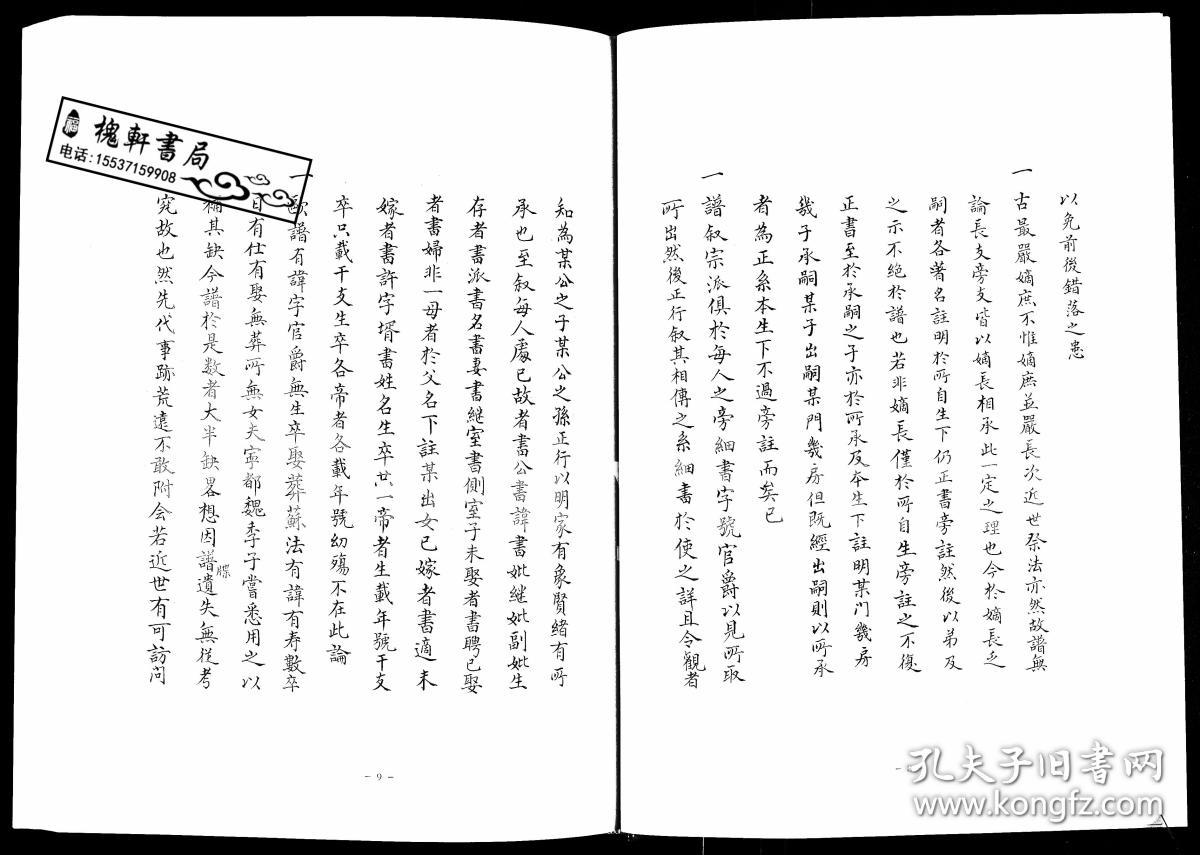 以免前後錯落之患
一古最嚴嫡庶不惟嫡庶並嚴長次近世祭法亦然故譜無
論長支旁支皆以嫡長相承此一定之理也今於嫡長之
嗣者各著名註明於所自生下仍正書旁註然後以弟及
之示不絕於譜也若非嫡長僅於所自生旁註之不復
正書至於承嗣之子亦於所承及本生下註明某門幾房
幾子承嗣某子出嗣某門幾房但既經出嗣則以所承
者為正系本生下不過旁註而矣已
一譜叙宗派俱於每人之旁細書字號官爵以見所取
所出然後正行叙其相傳之系細書於使之詳且令觀者
知為某公之子某公之孫正行以明家有象賢緒有所
承也至叙每人處已故者書公書諱書妣继妣副妣生
存者書派書名書妻書継室書側室子未娶者書聘已娶
者書婦非一母者於父名下註某出女已嫁者書適未
嫁者書許字壻書姓名生卒共一帝者生載年號干支
卒只載干支生卒各帝者各載年號幼殤不在此論
一歐譜有諱字官爵無生卒娶葬蘇法有諱有寿數卒
日有仕有娶無葬所無女夫寧都魏李子嘗悉用之以
補其缺今譜於是数者大半缺畧想因譜牒遺失無従考
究故也然先代事跡荒遠不敢附会若近世有可訪問
- 9 -
槐軒書局
电话:15537159908
福
孔夫子旧书网
www.kongfz.com